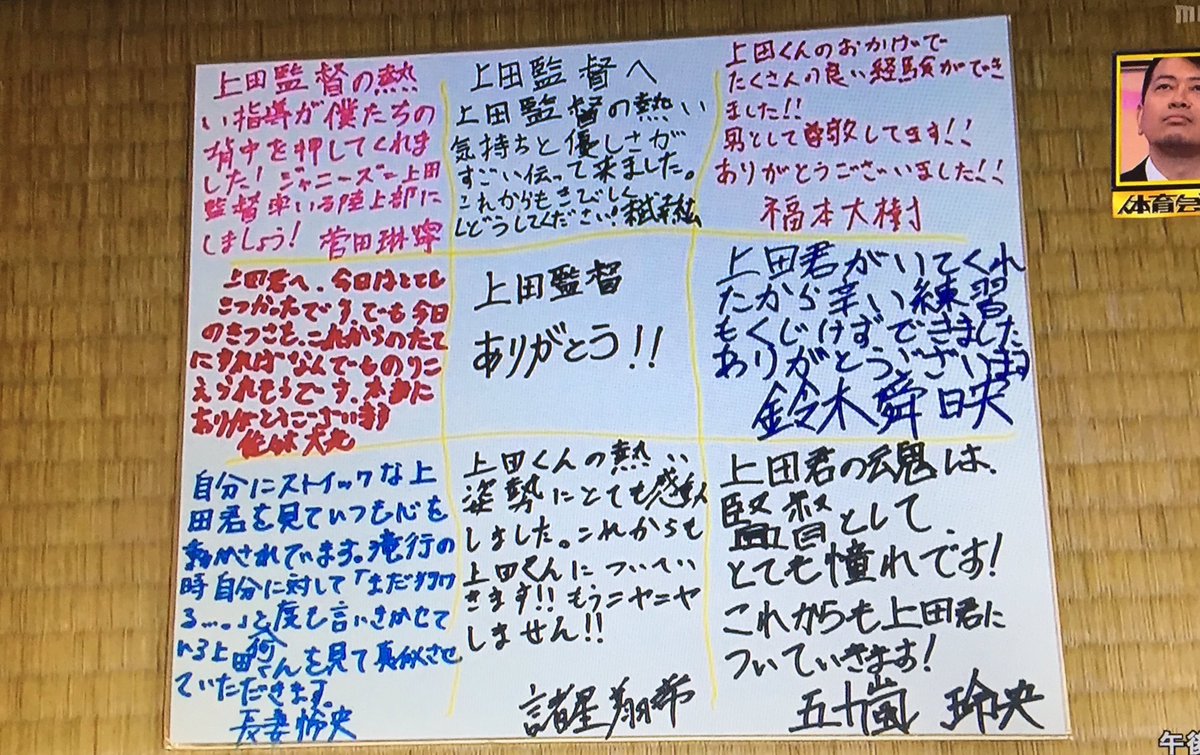 上田監督の熱
い指導が僕たちの
背中を押してくれま
した！ジャニーズに上田
監督率いる陸上部に
しましょう！ 菅田琳寧
上田監督へ
上田監督の熱い
気持ちと優しさが
すごい伝って来ました。
これからもきびしく
しどうしてください！
上田くんのおかげで
たくさんの良い経験ができ
ました!!
男として尊敬してます!!
ありがとうございました!!
福本大樹
上田君へ、今日はとても
きつかったです。でも今日
のきつさを、これからのたて
にすればなんでものりこ
えられそうです。本当に
ありがとうございます
上田監督
ありがとう!!
上田君がいてくれ
たから辛い練習
もくじけずできました
ありがとうございます
鈴木舜映
自分にストイックな上
田君を見ていつも心を
動かされています。滝行の
時自分に対して「まだ行け
る…。」と何度も言いきかせて
いる上田くんを見て真似させ
ていただきます。
長妻怜央
上田くんの熱い
姿勢にとても感動
しました。これからも
上田くんについてい
きます!!もうニヤニヤ
しません!!
諸星翔希
上田君の魂は、
監督として、
とても憧れです！
これからも上田君に
ついていきます！
五十嵐 玲央
体育会
午後